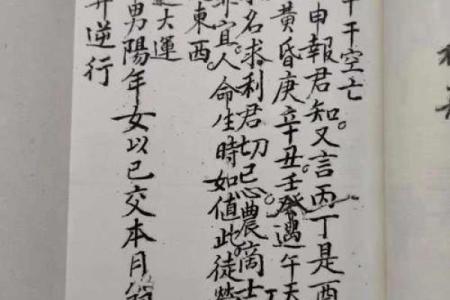 干空亡
申報君知。又言丙丁是酉
黄昏庚辛丑。壬癸遇午天
名求利君切忌。農商士
宜。人命生時如值此徒勞
東西。
大運
男陽年女以已交本月
逆行